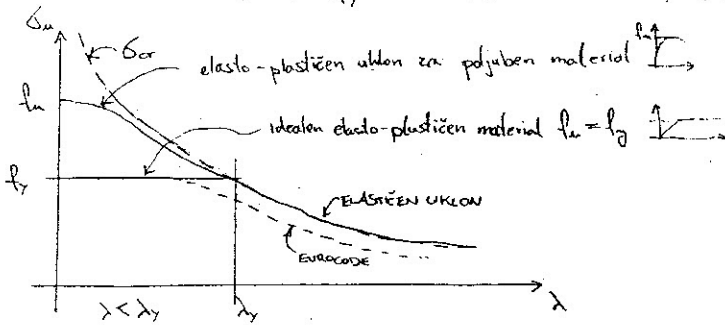 σu
σcr
elasto-plastičen uklon za poljuben material
fu
fu
idealen elasto-plastičen material fu = fy
fy
ELASTIČEN UKLON
EUROCODE
λ < λy
λy
λ